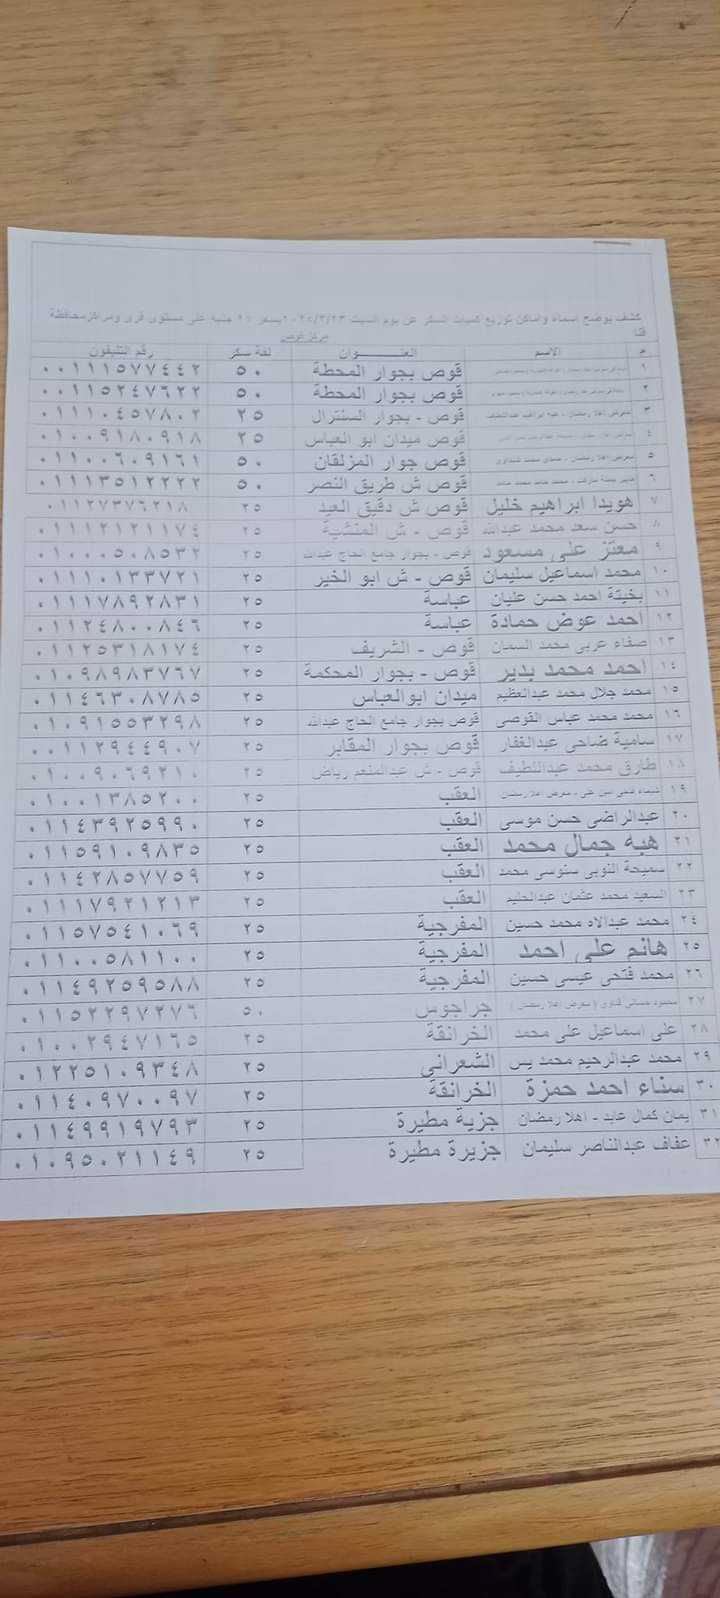 كشف يوضح اسماء واماكن توزيع كميات السكر عن يوم السبت ٢٠٢٤/٣/٢٣ بسعر ٢٧ جنيه على مستوى قرى ومراكز محافظة
قنا
مركز قوص
م الاسم العنـــوان لفة سكر رقم التليفون
١ قوص بجوار المحطة ٥٠ ٠٠١١١٥٧٧٤٤٢
٢ قوص بجوار المحطة ٥٠ ٠١١٥٢٤٧٦٢٢
٣ معرض اهلا رمضان - عبد قوص - بجوار السنترال ٢٥ ٠١١١٠٤٥٧٨٠٢
٤ قوص ميدان ابو العباس ٢٥ ٠١٠٠٩١٨٠٩١٨
٥ معرض اهلا رمضان - قوص جوار المزلقان ٥٠ ٠١١٠٠٦٠٩١٦١
٦ قوص ش طريق النصر ٥٠ ٠١١١٣٥١٢٢٢٢
٧ هويدا ابراهيم خليل قوص ش دقيق العيد ٢٥ ٠١١٢٧٣٧٦٢١٨
٨ حسن سعد محمد عبدالله قوص - ش المنشية ٢٥ ٠١١١٢١٢١١٧٤
٩ معتز على مسعود قوص - بجوار جامع الحاج عبدالله ٢٥ ٠١٠٠٠٥٠٨٥٣٢
١٠ محمد اسماعيل سليمان قوص - ش ابو الخير ٢٥ ٠١١١٠١٣٣٧٢١
١١ بخيتة احمد حسن عليان عباسة ٢٥ ٠١١١٧٨٩٢٨٣١
١٢ احمد عوض حمادة عباسة ٢٥ ٠١١٢٤٨٠٠٨٤٦
١٣ صفاء عربى محمد السمان قوص - الشريف ٢٥ ٠١١٢٥٣١٨١٧٤
١٤ احمد محمد بدير قوص - بجوار المحكمة ٢٥ ٠١٠٩٨٩٨٣٧٦٧
١٥ محمد جلال محمد عبدالعظيم ميدان ابوالعباس ٢٥ ٠١١٤٦٣٠٨٧٨٥
١٦ محمد محمد عباس القوصى قوص بجوار جامع الحاج عبدالله ٢٥ ٠١٠٩١٥٥٣٢٩٨
١٧ سامية ضاحى عبدالغفار قوص بجوار المقابر ٢٥ ٠٠١١٢٩٤٤٩٠٧
١٨ طارق محمد عبداللطيف قوص - ش عبدالمنعم رياض ٢٥ ٠١٠٠٩٠٦٩٢١٠
١٩ شيماء فتحى امين على - معرض اهلا رمضان العقب ٢٥ ٠١٠٠١٣٨٥٢٠٠
٢٠ عبدالراضى حسن موسى العقب ٢٥ ٠١١٤٣٩٢٥٩٩٠
٢١ هبه جمال محمد العقب ٢٥ ٠١١٥٩١٠٩٨٣٥
٢٢ سميحة النوبى سنوسى محمد العقب ٢٥ ٠١١٤٢٨٥٧٧٥٩
٢٣ السعيد محمد عثمان عبدالحليم العقب ٢٥ ٠١١١٧٩٢١٢١٣
٢٤ محمد عبدالاه محمد حسين المفرجية ٢٥ ٠١١٥٧٥٤١٠٦٩
٢٥ هانم على احمد المفرجية ٢٥ ٠١١٠٠٥٨١١٠٠
٢٦ محمد فتحى عيسى حسين المفرجية ٢٥ ٠١١٤٩٢٥٩٥٨٨
٢٧ محمود حسانى قناوى ( معرض اهلا رمضان ) جراجوس ٥٠ ٠١١٥٢٢٩٧٢٧٦
٢٨ على اسماعيل على محمد الخرانقة ٢٥ ٠١٠٠٢٩٤٧١٦٥
٢٩ محمد عبدالرحيم محمد يس الشعرانى ٢٥ ٠١٢٢٥١٠٩٣٤٨
٣٠ سناء احمد حمزة الخرانقة ٢٥ ٠١١٤٠٩٧٠٠٩٧
٣١ يمان كمال عابد - اهلا رمضان جزية مطيرة ٢٥ ٠١١٤٩٩١٩٧٩٣
٣٢ عفاف عبدالناصر سليمان جزيرة مطيرة ٢٥ ٠١٠٩٥٠٢١١٤٩